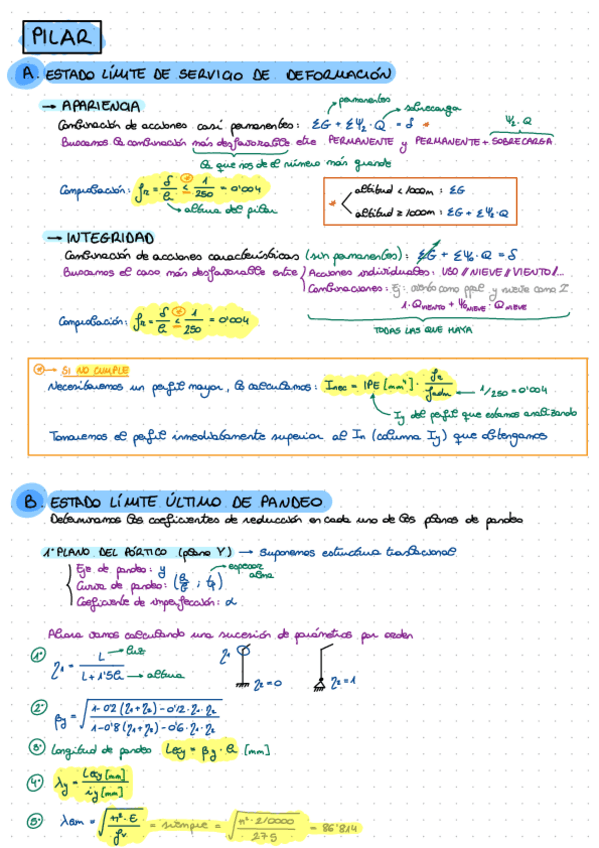 PILAR
A. ESTADO LÍMITE DE SERVICIO DE DEFORMACIÓN
→ APARIENCIA
permanentes
sobrecarga
Combinación de acciones casi permanentes: ΣG + Σψ₂·Q = δ *
ψ₂·Q
Buscamos la combinación más desfavorable entre PERMANENTE y PERMANENTE + SOBRECARGA.
La que nos dé el número más grande
Comprobación: fr = δ/h ≤ 1/250 = 0'004
→ altura del pilar
* altitud < 1000m : ΣG
altitud ≥ 1000m : ΣG + Σψ₂·Q
→ INTEGRIDAD
Combinación de acciones características (sin permanentes): ΣG + Σψ₀·Q = δ
Buscamos el caso más desfavorable entre Acciones individuales: USO // NIEVE // VIENTO //...
Combinaciones: Ej: viento como ppal y nieve como 2.
1·Q VIENTO + ψ₀ NIEVE · Q NIEVE
Comprobación: fr = δ/h ≤ 1/250 = 0'004
TODAS LAS QUE HAYA
→ SI NO CUMPLE
Necesitaremos un perfil mayor, lo calculamos: Inec = IPE [mm⁴] · fr/fadm ← 1/250 = 0'004
Iy del perfil que estamos analizando
Tomaremos el perfil inmediatamente superior al In (columna Iy) que obtengamos
B. ESTADO LÍMITE ÚLTIMO DE PANDEO
Determinamos los coeficientes de reducción en cada uno de los planos de pandeo
1º PLANO DEL PÓRTICO (plano Y) → Suponemos estructura traslacional
Eje de pandeo: y
espesor alma
Curva de pandeo: (h/b ; tf)
Coeficiente de imperfección: α
Ahora vamos calculando una sucesión de parámetros por orden
1º η₁ = L / L + 1'5h
→ luz
→ altura
η₁
η₂ = 0
η₂ = 1
2º βy = √ 1-0'2 (η₁+η₂) - 0'12·η₁·η₂ / 1-0'8 (η₁+η₂) - 0'6·η₁·η₂
3º Longitud de pandeo Lky = βy · h [mm]
4º λy = Lky [mm] / iy [mm]
5º λlim = √ π²·E / fy = siempre = √ π²·210000 / 275 = 86'814